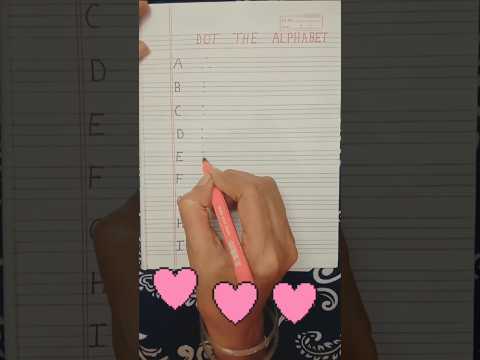 DOT THE ALPHABET
A
B
C
D
E
F
H
I